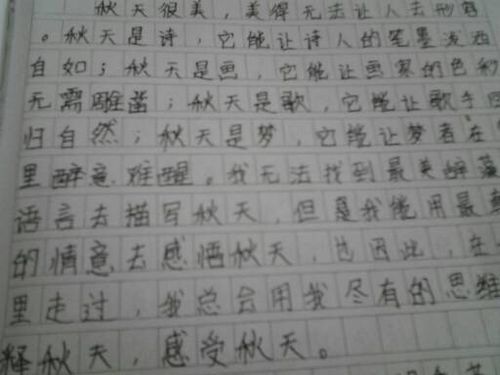 秋天很美，美得无法让人去形容
。秋天是诗，它能让诗人的笔墨泼洒
自如；秋天是画，它能让画家的色彩
无需雕凿；秋天是歌，它能让歌手回
归自然；秋天是梦，它能让梦者在
里醉意难醒。我无法找到最美辞藻
语言去描写秋天，但是我能用最
的情意去感悟秋天，也因此，在
里走过，我总会用我尽有的思维
释秋天，感受秋天。